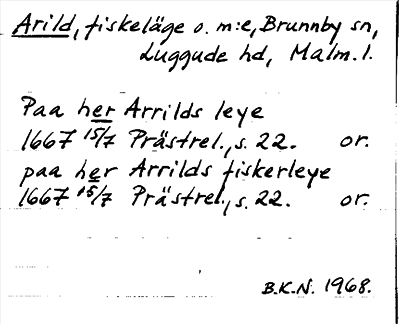 Arild, fiskeläge o. m:e, Brunnby sn,
Luggude hd, Malm. l.
Paa her Arrilds leye
1667 15/7 Prästrel., s. 22. or.
paa her Arrilds fiskerleye
1667 15/7 Prästrel., s. 22. or.
B.K.N. 1968.